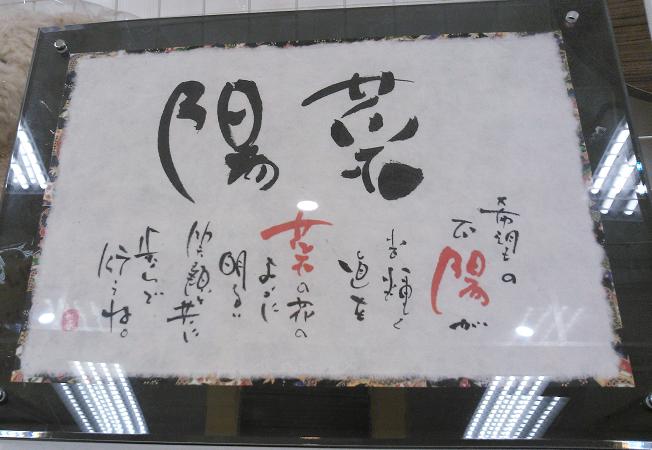 菜陽
希望の
太陽が
光輝く
道を
菜の花の
ように
明るい
笑顔と共に
歩んで
行こうね。